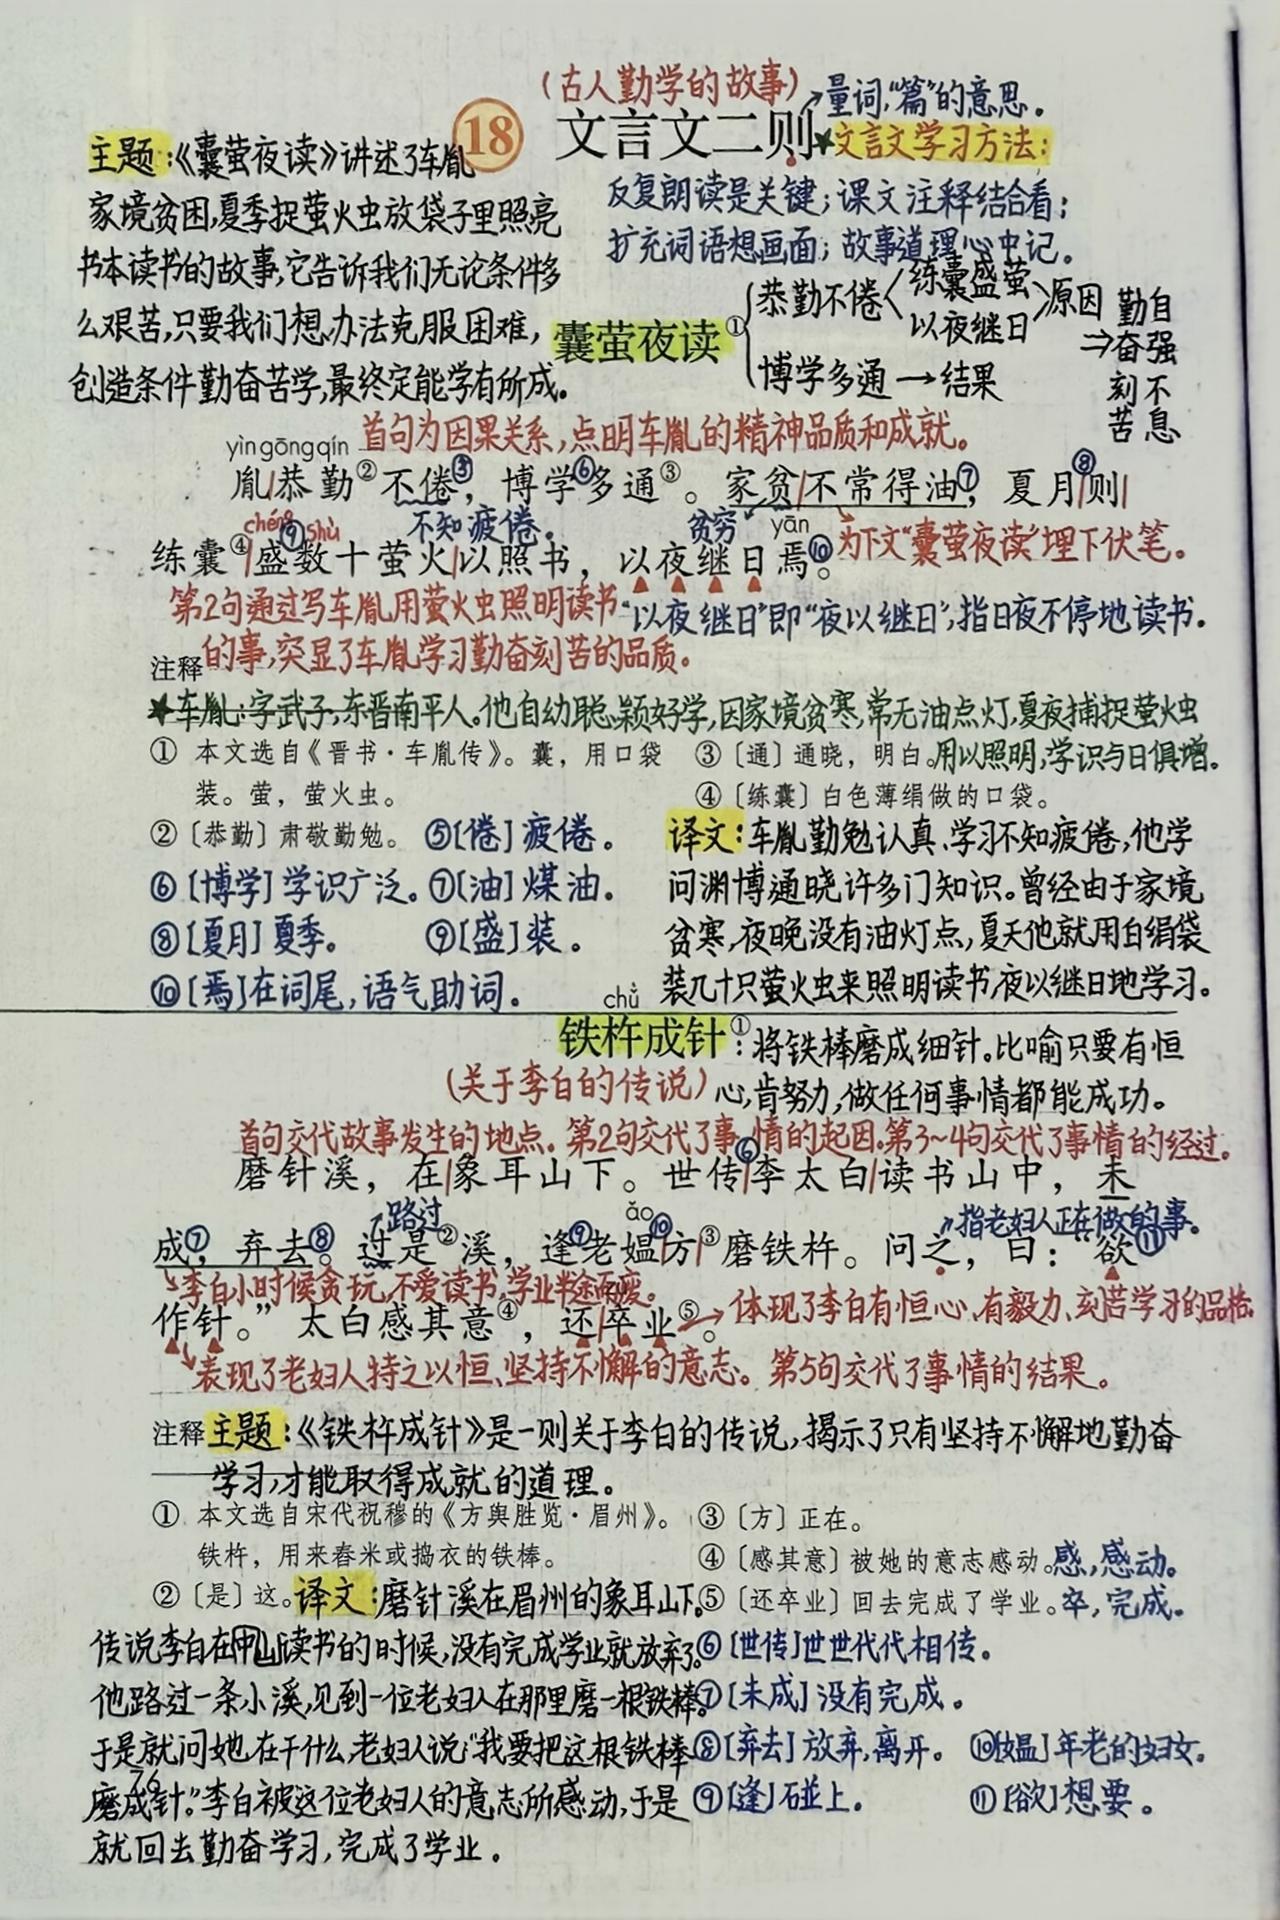 (古人勤学的故事)
18 文言文二则
量词,“篇”的意思。
★文言文学习方法:
反复朗读是关键;课文注释结合看;
扩充词语想画面;故事道理心中记。
主题:《囊萤夜读》讲述了车胤
家境贫困,夏季捉萤火虫放袋子里照亮
书本读书的故事,它告诉我们无论条件多
么艰苦,只要我们想办法克服困难,
创造条件勤奋苦学,最终定能学有所成。
囊萤夜读①
恭勤不倦 练囊盛萤 以夜继日 原因
博学多通→结果
⇒勤奋刻苦 自强不息
首句为因果关系,点明车胤的精神品质和成就。
yìn gōng qín
胤/恭勤②不倦③,博学⑥多通③。家贫/不常得油⑦,夏月⑧/则/
chéng ⑨ shù 不知疲倦。 贫穷 yān 为下文“囊萤夜读”埋下伏笔。
练囊④/盛数十萤火/以照书,以夜继日焉⑩。
第2句通过写车胤用萤火虫照明读书
的事,突显了车胤学习勤奋刻苦的品质。
“以夜继日”即“夜以继日”,指日夜不停地读书。
注释
★车胤:字武子,东晋南平人。他自幼聪颖好学,因家境贫寒,常无油点灯,夏夜捕捉萤火虫
用以照明,学识与日俱增。
① 本文选自《晋书·车胤传》。囊,用口袋
装。萤,萤火虫。
②〔恭勤〕肃敬勤勉。
③〔通〕通晓,明白。
④〔练囊〕白色薄绢做的口袋。
⑤[倦]疲倦。
⑥[博学]学识广泛。⑦[油]煤油。
⑧[夏月]夏季。 ⑨[盛]装。
⑩[焉]在词尾,语气助词。
译文:车胤勤勉认真、学习不知疲倦,他学
问渊博通晓许多门知识。曾经由于家境
贫寒,夜晚没有油灯点,夏天他就用白绢袋
装几十只萤火虫来照明读书,夜以继日地学习。
chǔ
铁杵成针①:将铁棒磨成细针。比喻只要有恒
心,肯努力,做任何事情都能成功。
(关于李白的传说)
首句交代故事发生的地点。第2句交代了事情的起因。第3~4句交代了事情的经过。
磨针溪,在/象耳山下。世传⑥/李太白/读书山中,未
路过 ǎo 指老妇人正在做的事。
成⑦,弃去⑧。过是②溪,逢⑨老媪⑩/方/③磨铁杵。问之,曰:“欲⑪
李白小时候贪玩,不爱读书,学业半途而废。
作针。”太白感其意④,还/卒业⑤。
体现了李白有恒心、有毅力、刻苦学习的品格。
表现了老妇人持之以恒、坚持不懈的意志。 第5句交代了事情的结果。
注释
主题:《铁杵成针》是一则关于李白的传说,揭示了只有坚持不懈地勤奋
学习,才能取得成就的道理。
① 本文选自宋代祝穆的《方舆胜览·眉州》。
铁杵,用来舂米或捣衣的铁棒。
②〔是〕这。
③〔方〕正在。
④〔感其意〕被她的意志感动。感,感动。
⑤〔还卒业〕回去完成了学业。卒,完成。
⑥[世传]世世代代相传。
⑦[未成]没有完成。
⑧[弃去]放弃,离开。 ⑩[媪]年老的妇女。
⑨[逢]碰上。 ⑪[欲]想要。
译文:磨针溪在眉州的象耳山下。
传说李白在山中读书的时候,没有完成学业,就放弃了。
他路过一条小溪,见到一位老妇人在那里磨一根铁棒。
于是就问她在干什么,老妇人说:“我要把这根铁棒
磨成针。”李白被这位老妇人的意志所感动,于是
就回去勤奋学习,完成了学业。